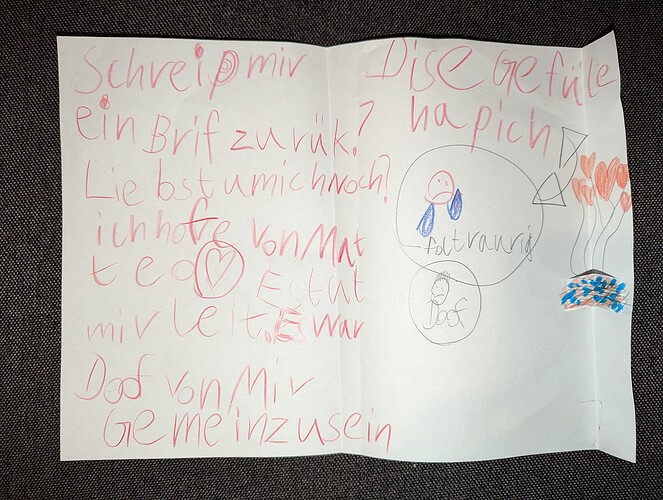 Schreip mir
ein Brif zurük?
Liebstumichnoch?
ich hofe von Mat
teo
Estut
mir leit. E War
Doof von Mir
Gemein zu sein
Dise Gefüle
hapich
foltraurig
Doof